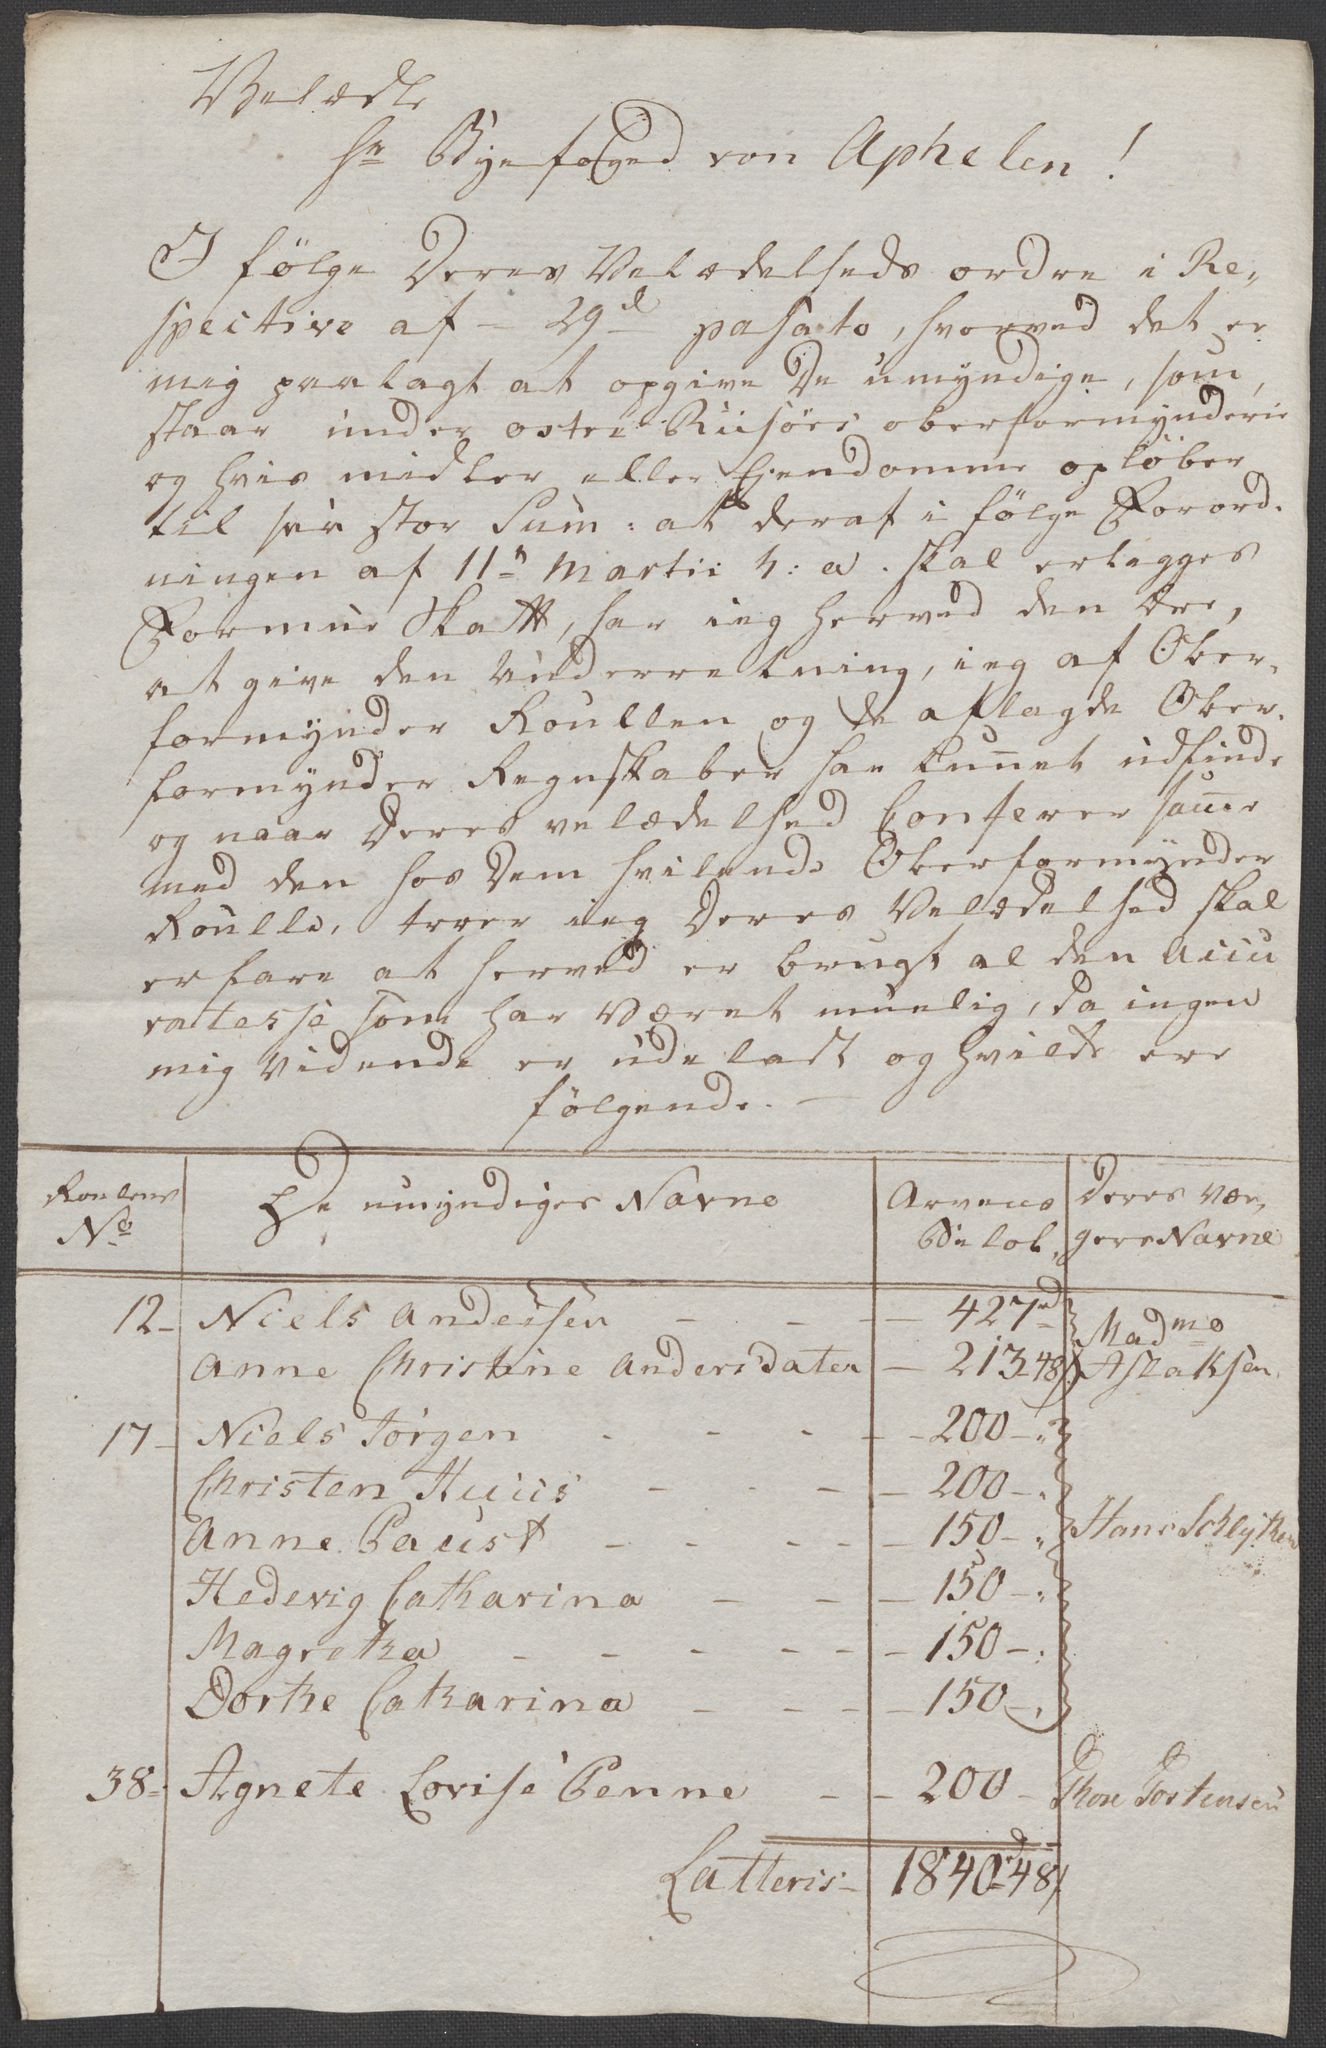 Velædle
Hr Byefoged von Aphelen!
I følge Deres Velædelheds ordre i Re-
spective af - 29d pasato, hvorved det er
mig paalagt at opgive De umyndige, som,
staar under oster Riisöer oberformynderie
og hvis midler eller Eiendomme opløber
til saa stor Sum: at deraf i følge Forord-
ningen af 11n Martii h: a. skal erlegges
Formue Skatt, har ieg herved den Ære,
at give den Underretning, ieg af Ober-
formynder Roullen og de aflagde Ober-
formynder Regnskaber har kunnet udfinde
og naar Deres velædelhed Conferer samme
med den hos Dem hvilende Oberformynder
Roulle, troer ieg Deres Velædelhed skal
erfare at herved er brugt al den accu
ratesse som har Været muelig, da ingen
mig Vidende er udeladt og hvilke ere
følgende. -
Roulens No
De umyndiges Navne
Arvens Beløb,
Deres vær-
gers Navne
12- Niels Anderssen - - - 427rd Madme
Anne Christine Andersdater - 213 48s Aslaksen
17- Niels Jörgen - - - - 200 - „
Christen Huus - - - - 200 - „
Anne Paust - - - - - 150 - „ Hans Schlytter
Hedevig Catharina - - - 150 - „
Magretha - - - - - - 150 - „
Dorthe Catharina - - - - 150 - „
38- Agnete Lovise Penne - - 200 - Thor Tostensen
Latteris - 1840rd 48s